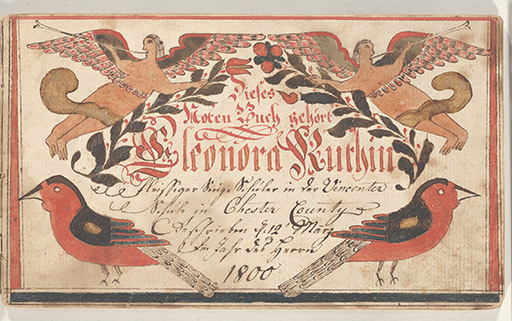 Dieses
Noten Buch gehört
Eleonora Ruthin
fleissiger Sing Schüler in der Vincenter
Schule in Chester County
Geschrieben d. 12 März
Im Jahr des Herrn
1800